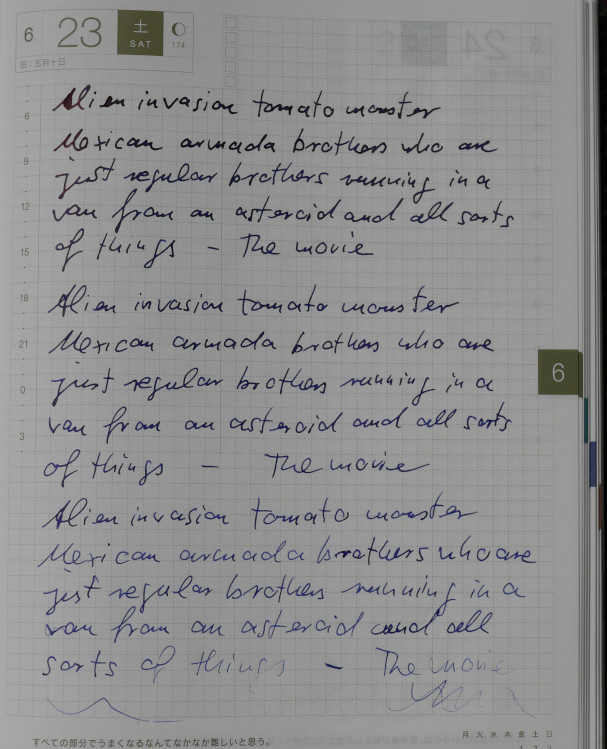 6 23 土 SAT 174
旧:五月十日
Alien invasion tomato monster
Mexican armada brothers who are
just regular brothers running in a
van from an asteroid and all sorts
of things - The movie
Alien invasion tomato monster
Mexican armada brothers who are
just regular brothers running in a
van from an asteroid and all sorts
of things - The movie
Alien invasion tomato monster
Mexican armada brothers who are
just regular brothers running in a
van from an asteroid and all
sorts of things - The movie
6
9
12
15
18
21
0
3
6
すべての部分でうまくなるなんてなかなか難しいと思う。
月 火 水 木 金 土 日
1 2 3